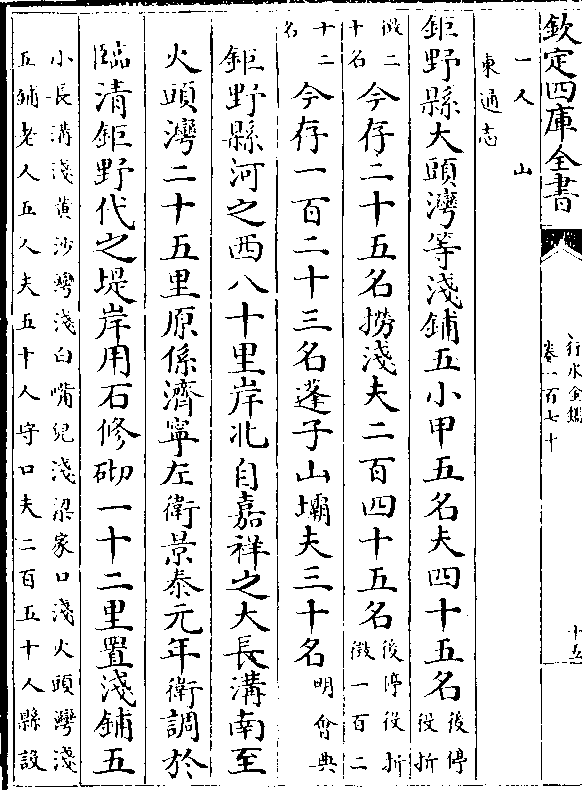 欽定四庫全書
行水金鑑
卷一百七十
十五
一人 山
東通志
鉅野縣大頭灣等淺鋪五小甲五名夫四十五名後停役折
徵二十名今存二十五名撈淺夫二百四十五名後停役折徵一百二
十二名今存一百二十三名蓬子山壩夫三十名明會典
鉅野縣河之西八十里岸北自嘉祥之大長溝南至
火頭灣二十五里原係濟寧左衛景泰元年衛調於
臨清鉅野代之堤岸用石修砌一十二里置淺鋪五
小長溝淺黄沙灣淺白嘴兒淺梁家口淺火頭灣淺
五鋪老人五人夫五十人守口夫二百五十人縣設